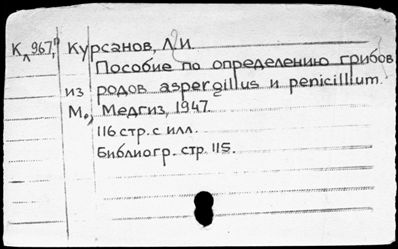 Курсанов, Л.И.
Пособие по определению грибов
из родов aspergillus и penicillium.
М., Медгиз, 1947.
116 стр. с илл.
Библиогр. стр. 115.